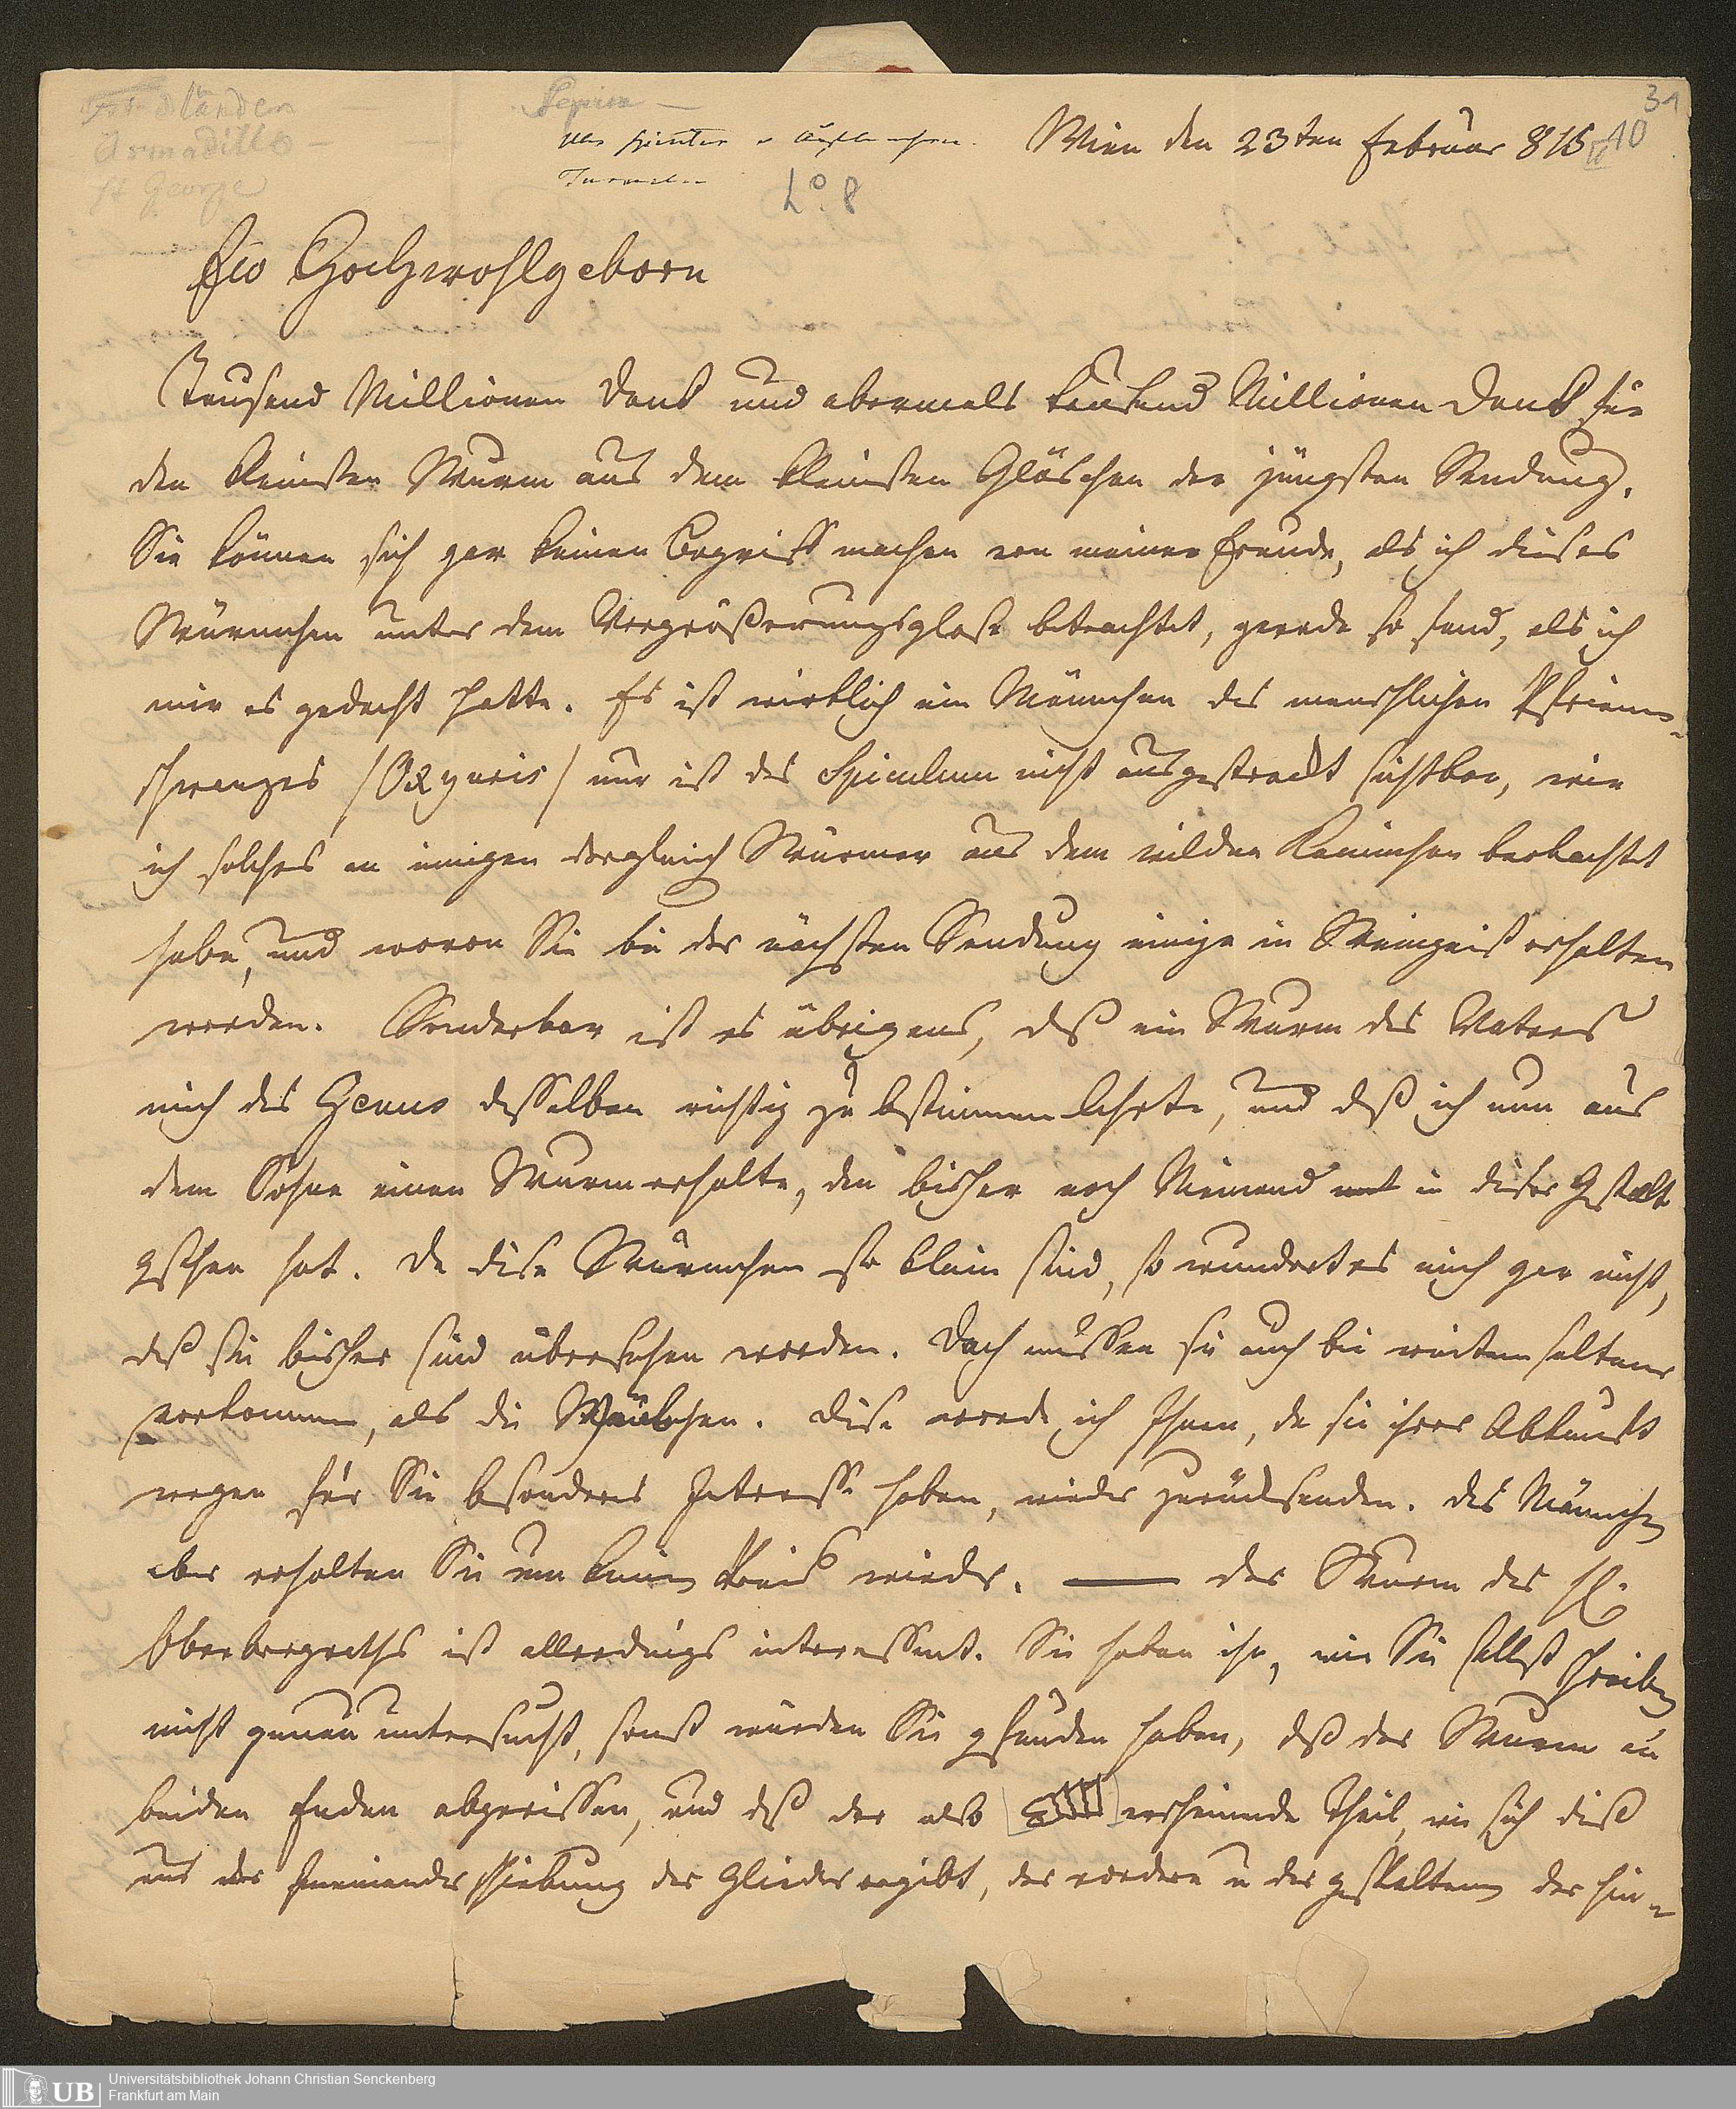 31
Armadillo
St George
Wien den 23ten Februar 815
10
No. 8
Ew Hochwohlgeborn
Tausend Millionen Dank und abermals tausend Millionen Dank für
den kleinsten Wurm aus dem kleinsten Gläschen der jüngsten Sendung.
Sie können sich gar keinen Begriff machen von meiner Freude, als ich dieses
Würmchen unter dem Vergrößerungsglase betrachtet, gerade so fand, als ich
mir es gedacht hatte. Es ist wirklich ein Männchen des menschlichen Pfriem-
schwanzes /Oxyuris/ nur ist das Spiculum nicht ausgestreckt sichtbar, wie
ich solches an einigen dergleich Würmer aus dem wilden Kaninchen beobachtet
habe, und wovon Sie bei der nächsten Sendung einige in Weingeist erhalten
werden. Sonderbar ist es übrigens, daß ein Wurm des Vaters
mich das Genus desselben richtig zu bestimmen lehrte, und daß ich nun aus
dem Sohne einen Wurm erhalte, den bisher noch Niemand in dieser Gestalt
gesehen hat. Da diese Würmchen so klein sind, so wundert es mich gar nicht,
daß sie bisher sind übersehen worden. Doch müssen sie auch bei weitem seltener
vorkommen, als die Weibchen. Diese werde ich Ihnen, da sie ihrer Abkunft
wegen für Sie besonderes Interesse haben, wieder zurücksenden. Das Männchen
aber erhalten Sie um keinen Preis wieder. — Der Wurm des H.
Oberbergraths ist allerdings interessant. Sie haben ihn, wie Sie selbst schreiben
nicht genau untersucht, sonst würden Sie gefunden haben, daß der Wurm an
beiden Enden abgerissen, und daß der also erscheinende Theil, wie sich dieß
aus der Ineinanderschiebung der Glieder ergibt, der vordere u der gespaltene der hin-
Universitätsbibliothek Johann Christian Senckenberg
Frankfurt am Main
UB